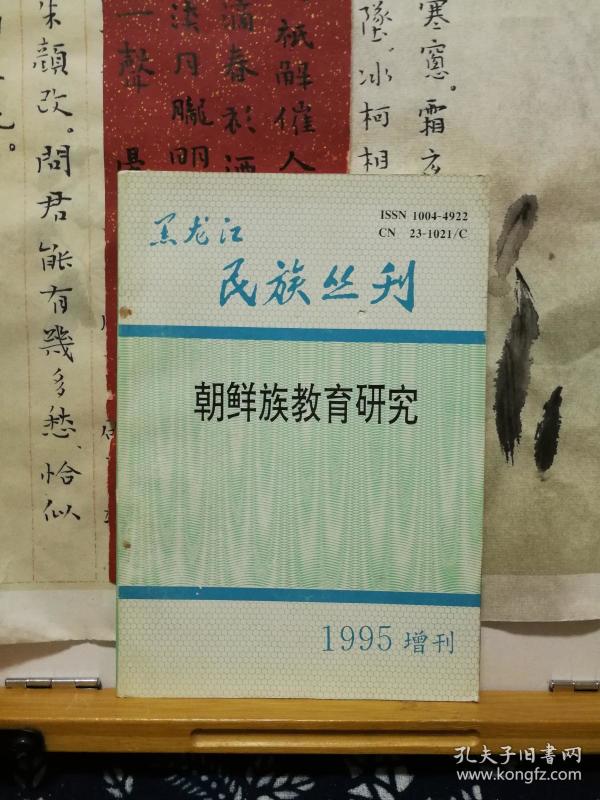 朱顏改。問君能有幾多愁、恰似
一聲
滴春衫酒
淡月朧明
祇解催人
墜、冰柯相
寒窓。霜
ISSN 1004-4922
CN 23-1021/C
黑龙江
民族丛刊
朝鲜族教育研究
1995 增刊
孔夫子旧书网
www.kongfz.com